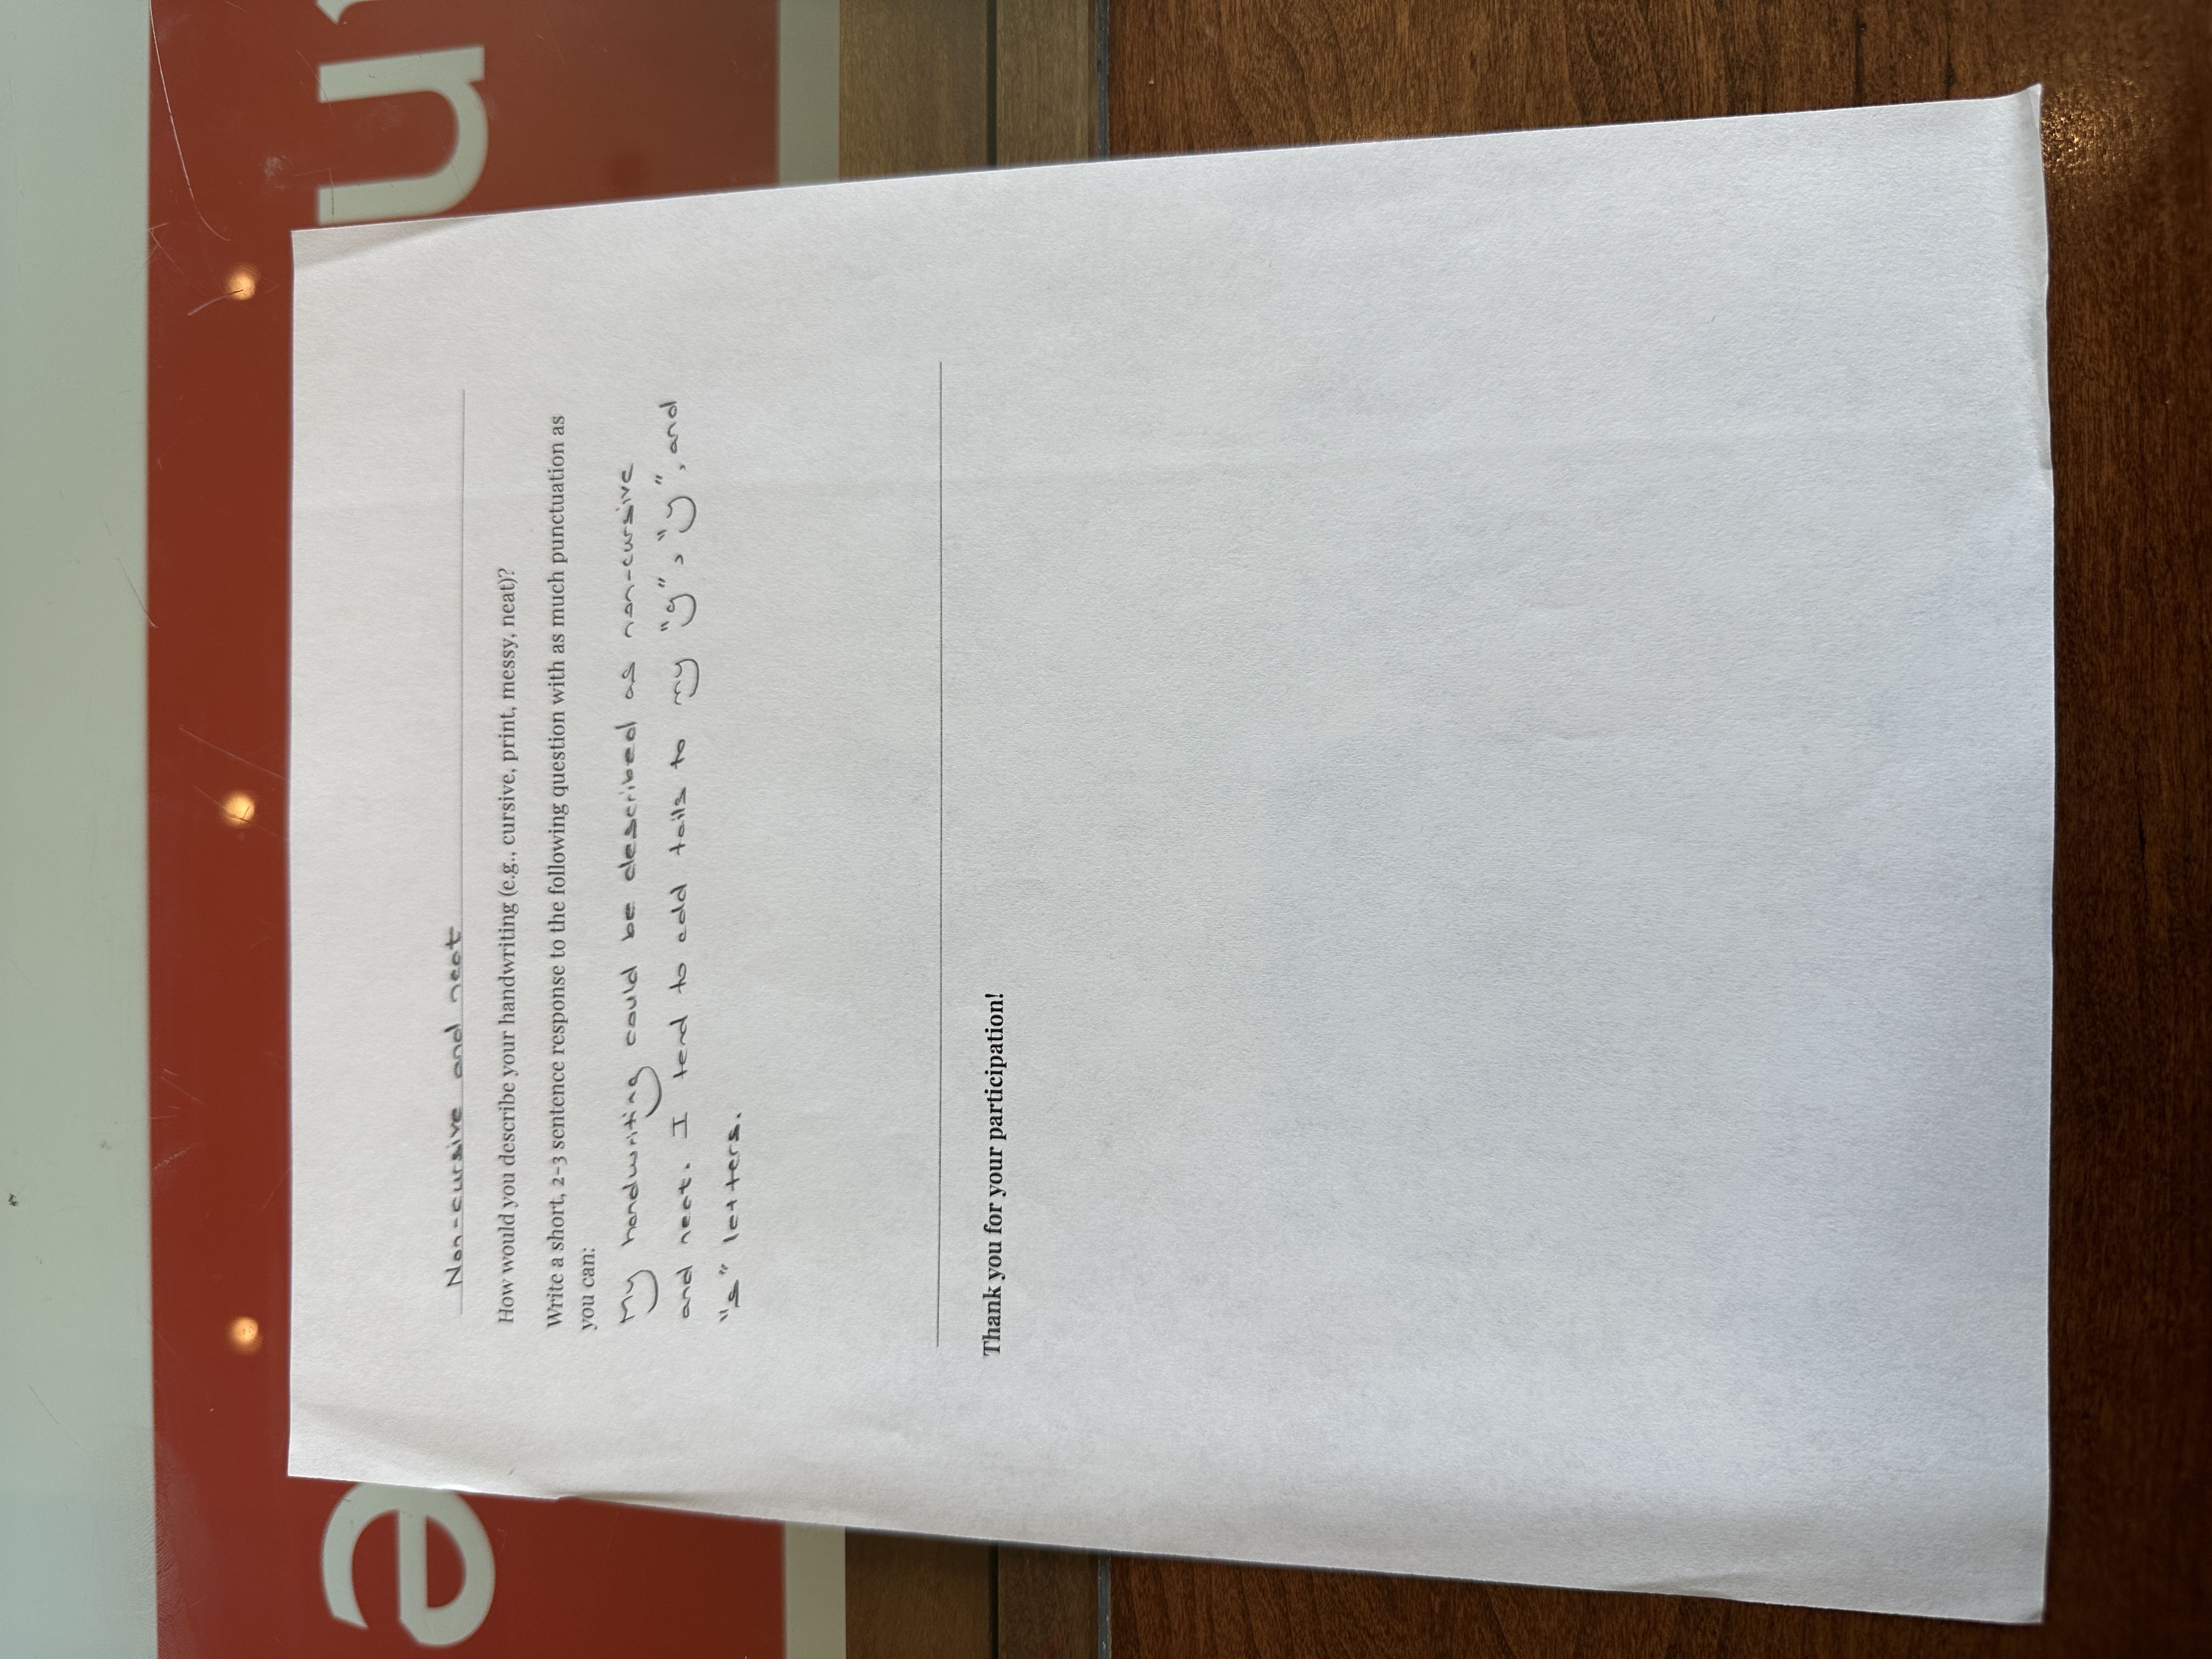 Non-cursive and neat
How would you describe your handwriting (e.g., cursive, print, messy, neat)?
Write a short, 2-3 sentence response to the following question with as much punctuation as
you can:
My handwriting could be described as non-cursive
and neat. I tend to add tails to my "g", "y", and
"s" letters.
Thank you for your participation!